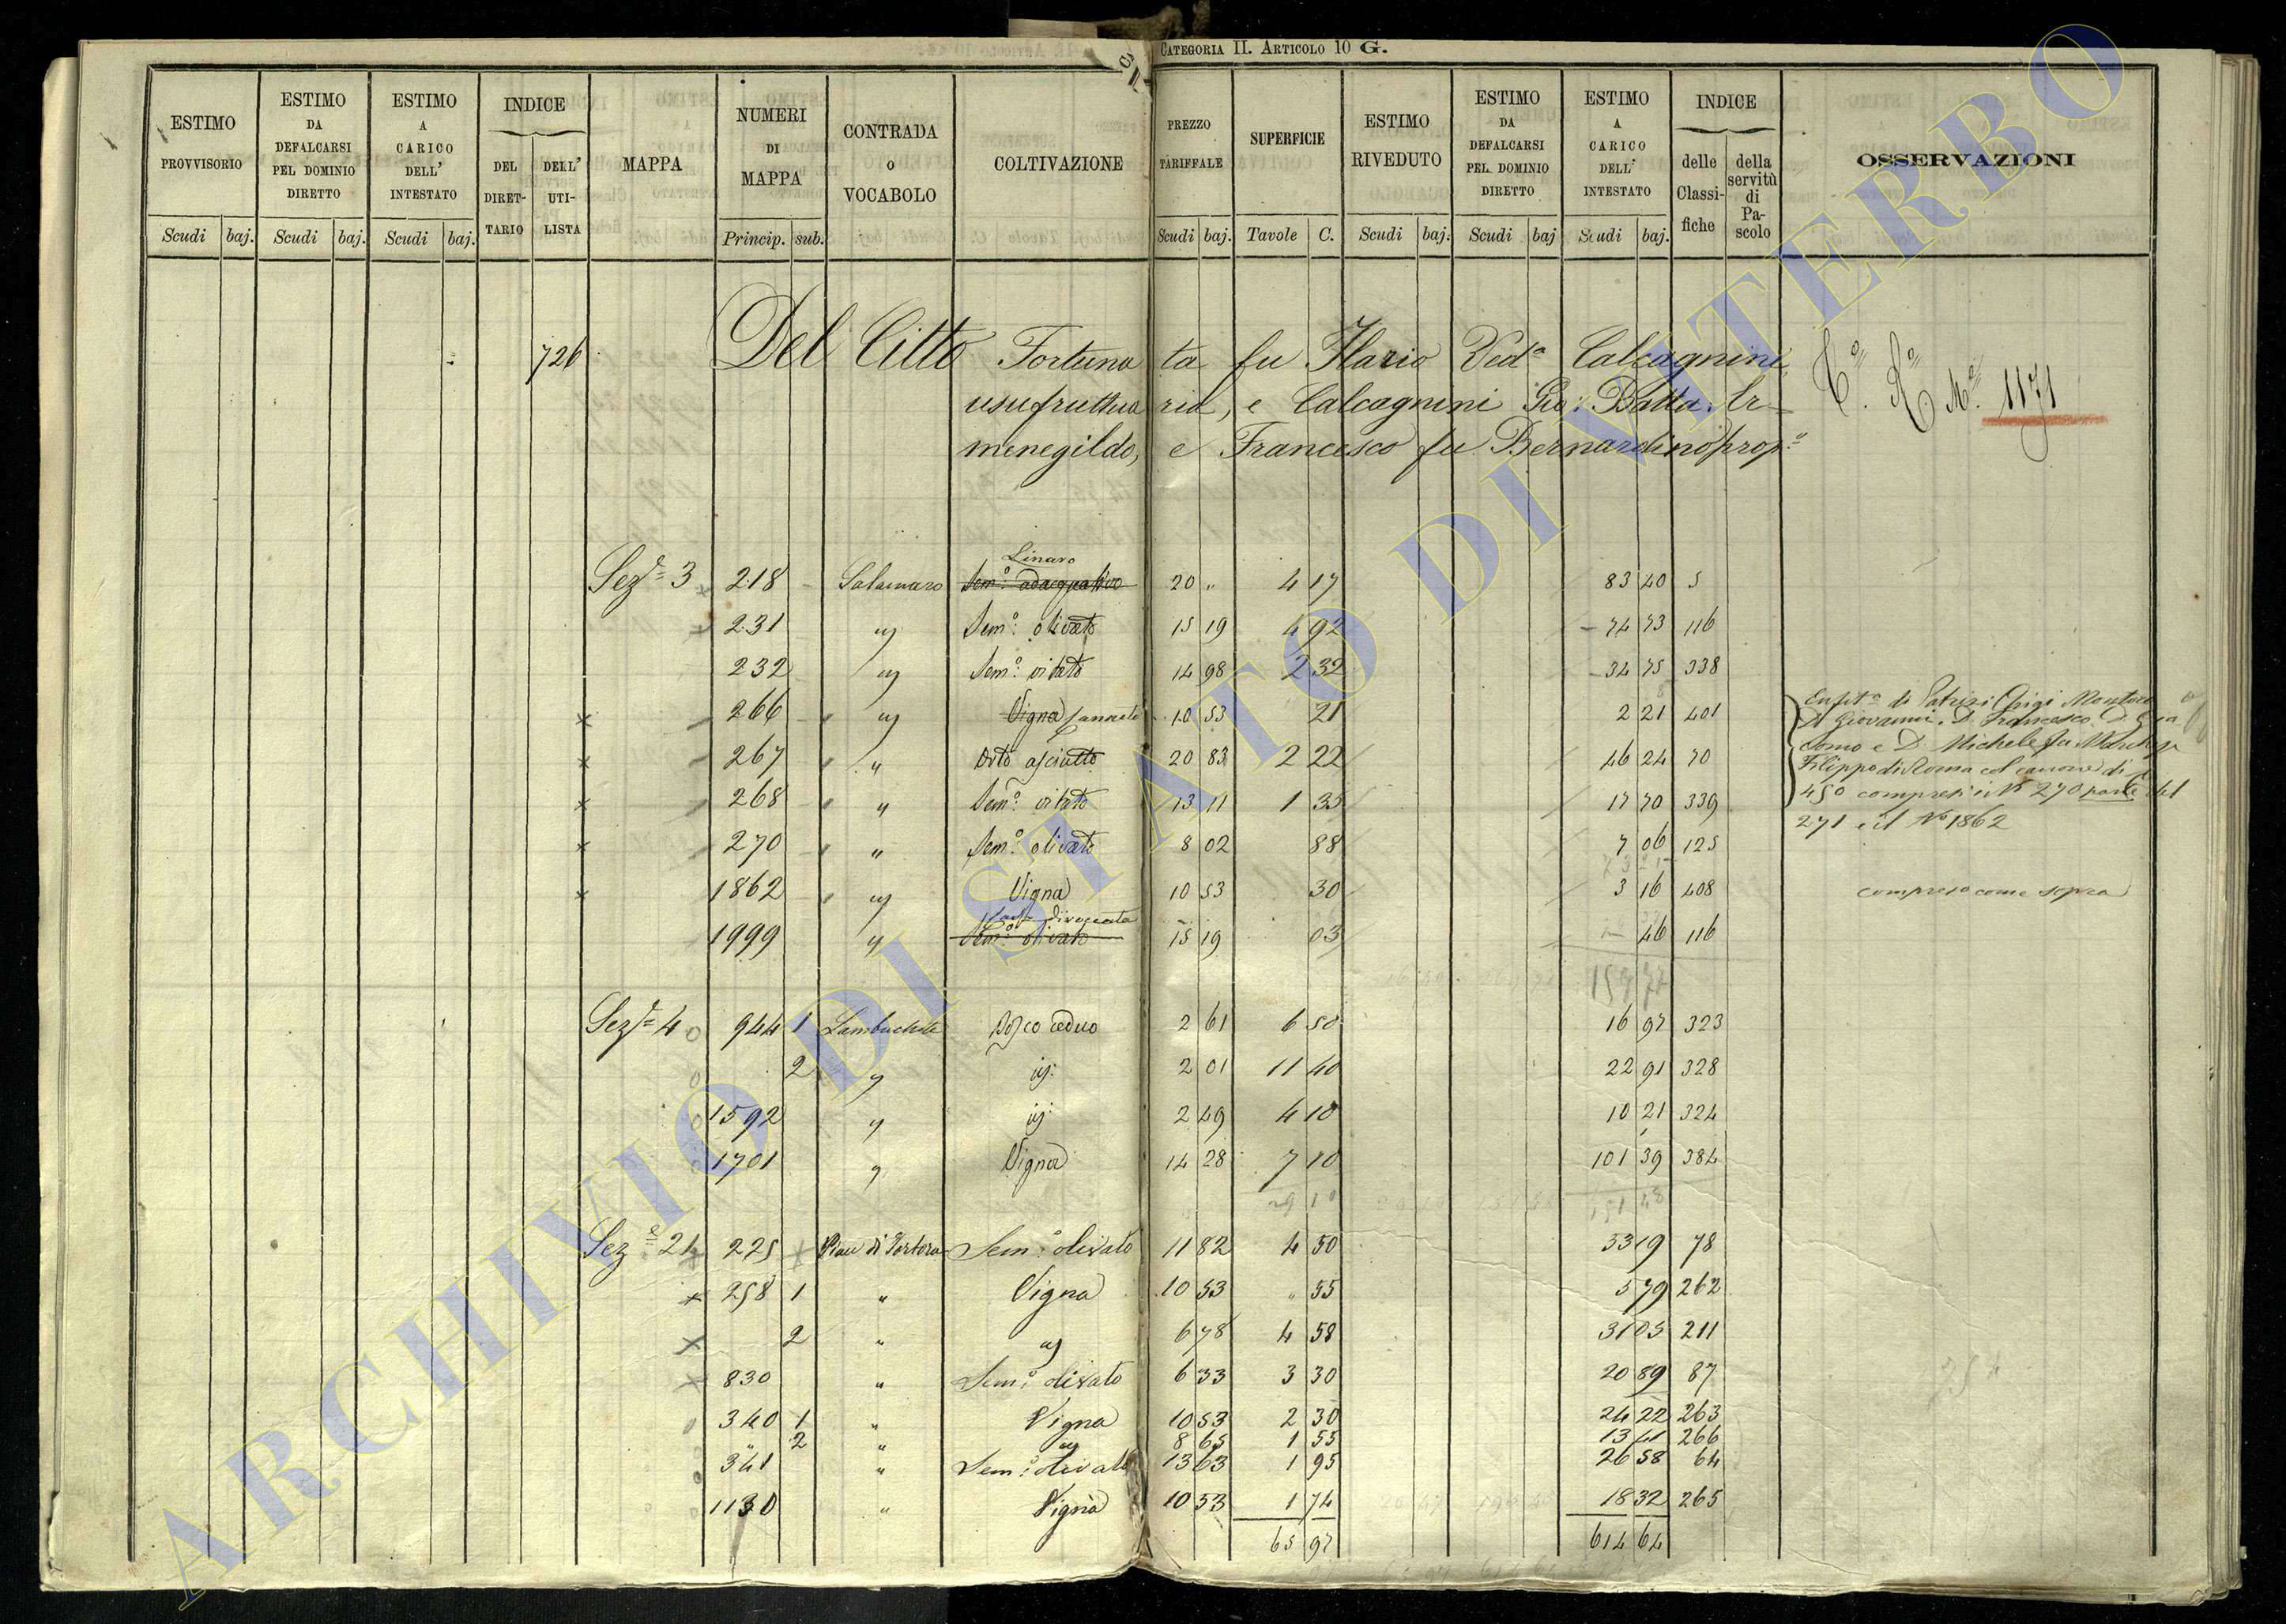 CATEGORIA II. ARTICOLO 10 G.
ESTIMO PROVVISORIO Scudi baj.
ESTIMO DA DEFALCARSI PEL DOMINIO DIRETTO Scudi baj.
ESTIMO A CARICO DELL' INTESTATO Scudi baj.
INDICE DEL DIRETTARIO DELL' UTILISTA
MAPPA
NUMERI DI MAPPA Princip. sub.
CONTRADA o VOCABOLO
COLTIVAZIONE
PREZZO TARIFFALE Scudi baj.
SUPERFICIE Tavole C.
ESTIMO RIVEDUTO Scudi baj.
ESTIMO DA DEFALCARSI PEL DOMINIO DIRETTO Scudi baj
ESTIMO A CARICO DELL' INTESTATO Scudi baj.
INDICE delle Classifiche della servitù di Pascolo
OSSERVAZIONI
726 Del Citto Fortunata fu Ilario Ved.a Calcagnini
usufruttuaria, e Calcagnini Gio: Batta. Er=
menegildo, e Francesco fu Bernardino prop.
1171
Linaro
Sez.e 3 218 Salamaro Sem.o adacquativo 20 " 4 17 83 40 5
231 " Sem.o olivato 15 19 4 92 74 73 116
232 " Sem.o vitato 14 98 2 32 34 75 338
266 " Vigna 10 53 21 2 21 401
267 " Orto asciutto 20 83 2 22 46 24 70
268 " Sem.o vitato 13 11 1 35 17 70 339
270 " Sem.o olivato 8 02 88 7 06 125
1862 " Vigna 10 53 30 3 16 408
1999 " Sem.o olivato 15 19 03 46 116
Enfit.a di Patrizi Montoro
D. Giovanni. D. Francesco. D. Gia
como e D. Michele fu March.
Filippo di Roma col canone di
450 compresi i N. 270 parte del
271 e il No 1862
compreso come sopra
Sez.e 4 944 1 Bosco ceduo 2 61 6 50 16 97 323
2 " " 2 01 11 40 22 91 328
1592 " " 2 49 4 10 10 21 324
1701 " Vigna 14 28 7 10 101 39 384
Sez.e 21 225 Piau di Tortora Sem.o olivato 11 82 4 50 53 19 78
258 1 " Vigna 10 53 " 55 5 79 262
2 " " 6 78 4 58 31 05 211
830 " Sem.o olivato 6 33 3 30 20 89 87
340 1 " Vigna 10 53 2 30 24 22 263
2 " " 8 65 1 55 13 41 266
341 " Sem.o olivato 13 63 1 95 26 58 64
1130 " Vigna 10 53 1 74 18 32 265
65 97 614 64
ARCHIVIO DI STATO DI VITERBO